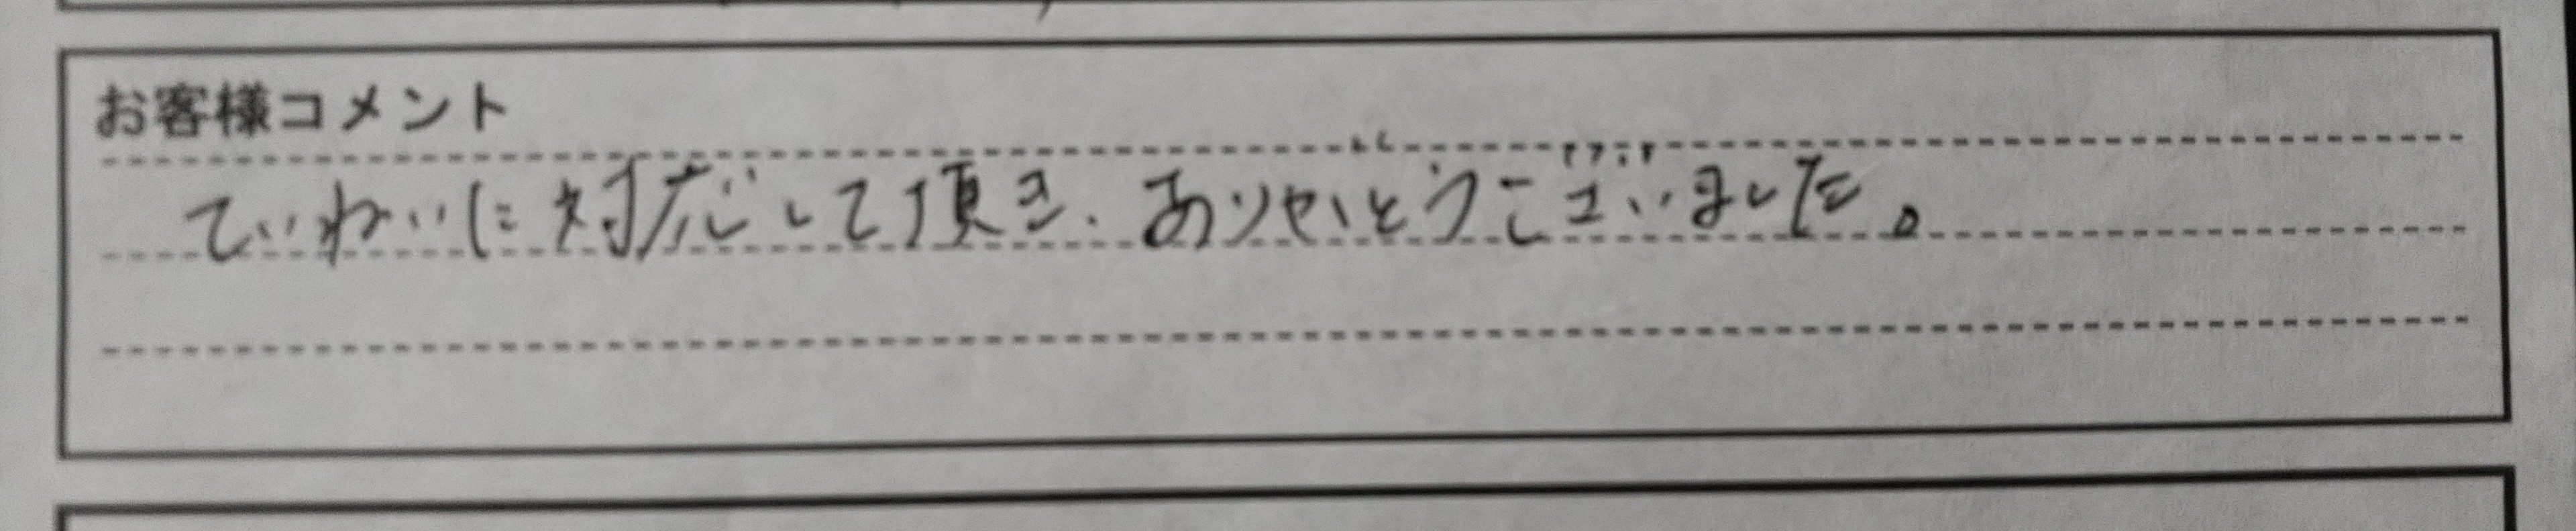 お客様コメント
ていねいに対応して頂き、ありがとうございました。